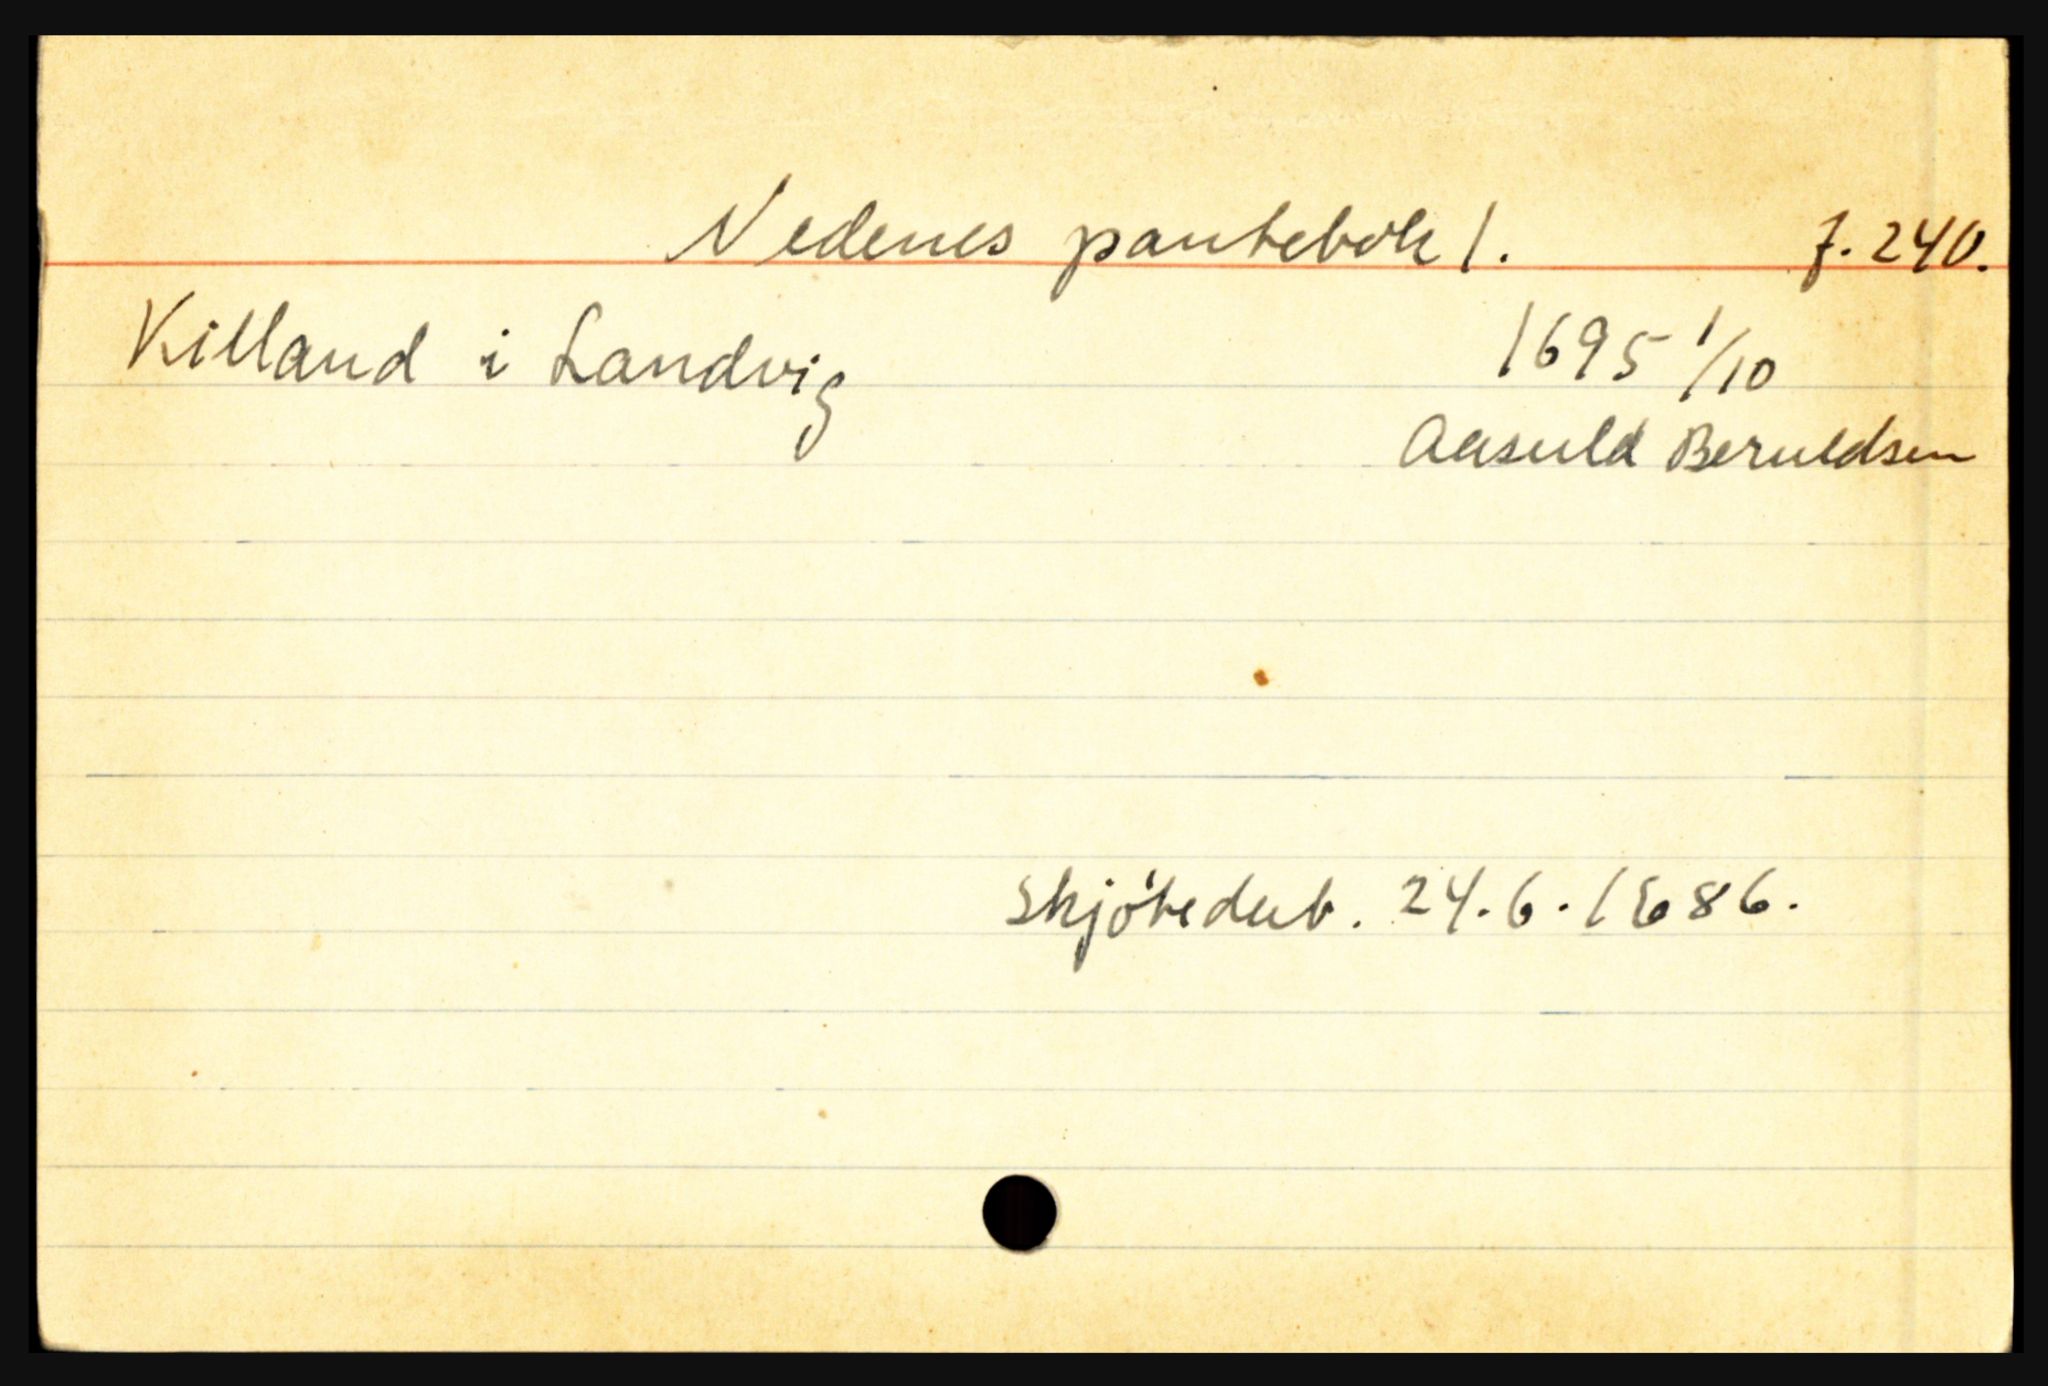 Nedenes pantebok 1. f. 240.
Killand i Landvig 1695 1/10
Aasuld Beruldsen
Skjötedat. 24.6.1686.